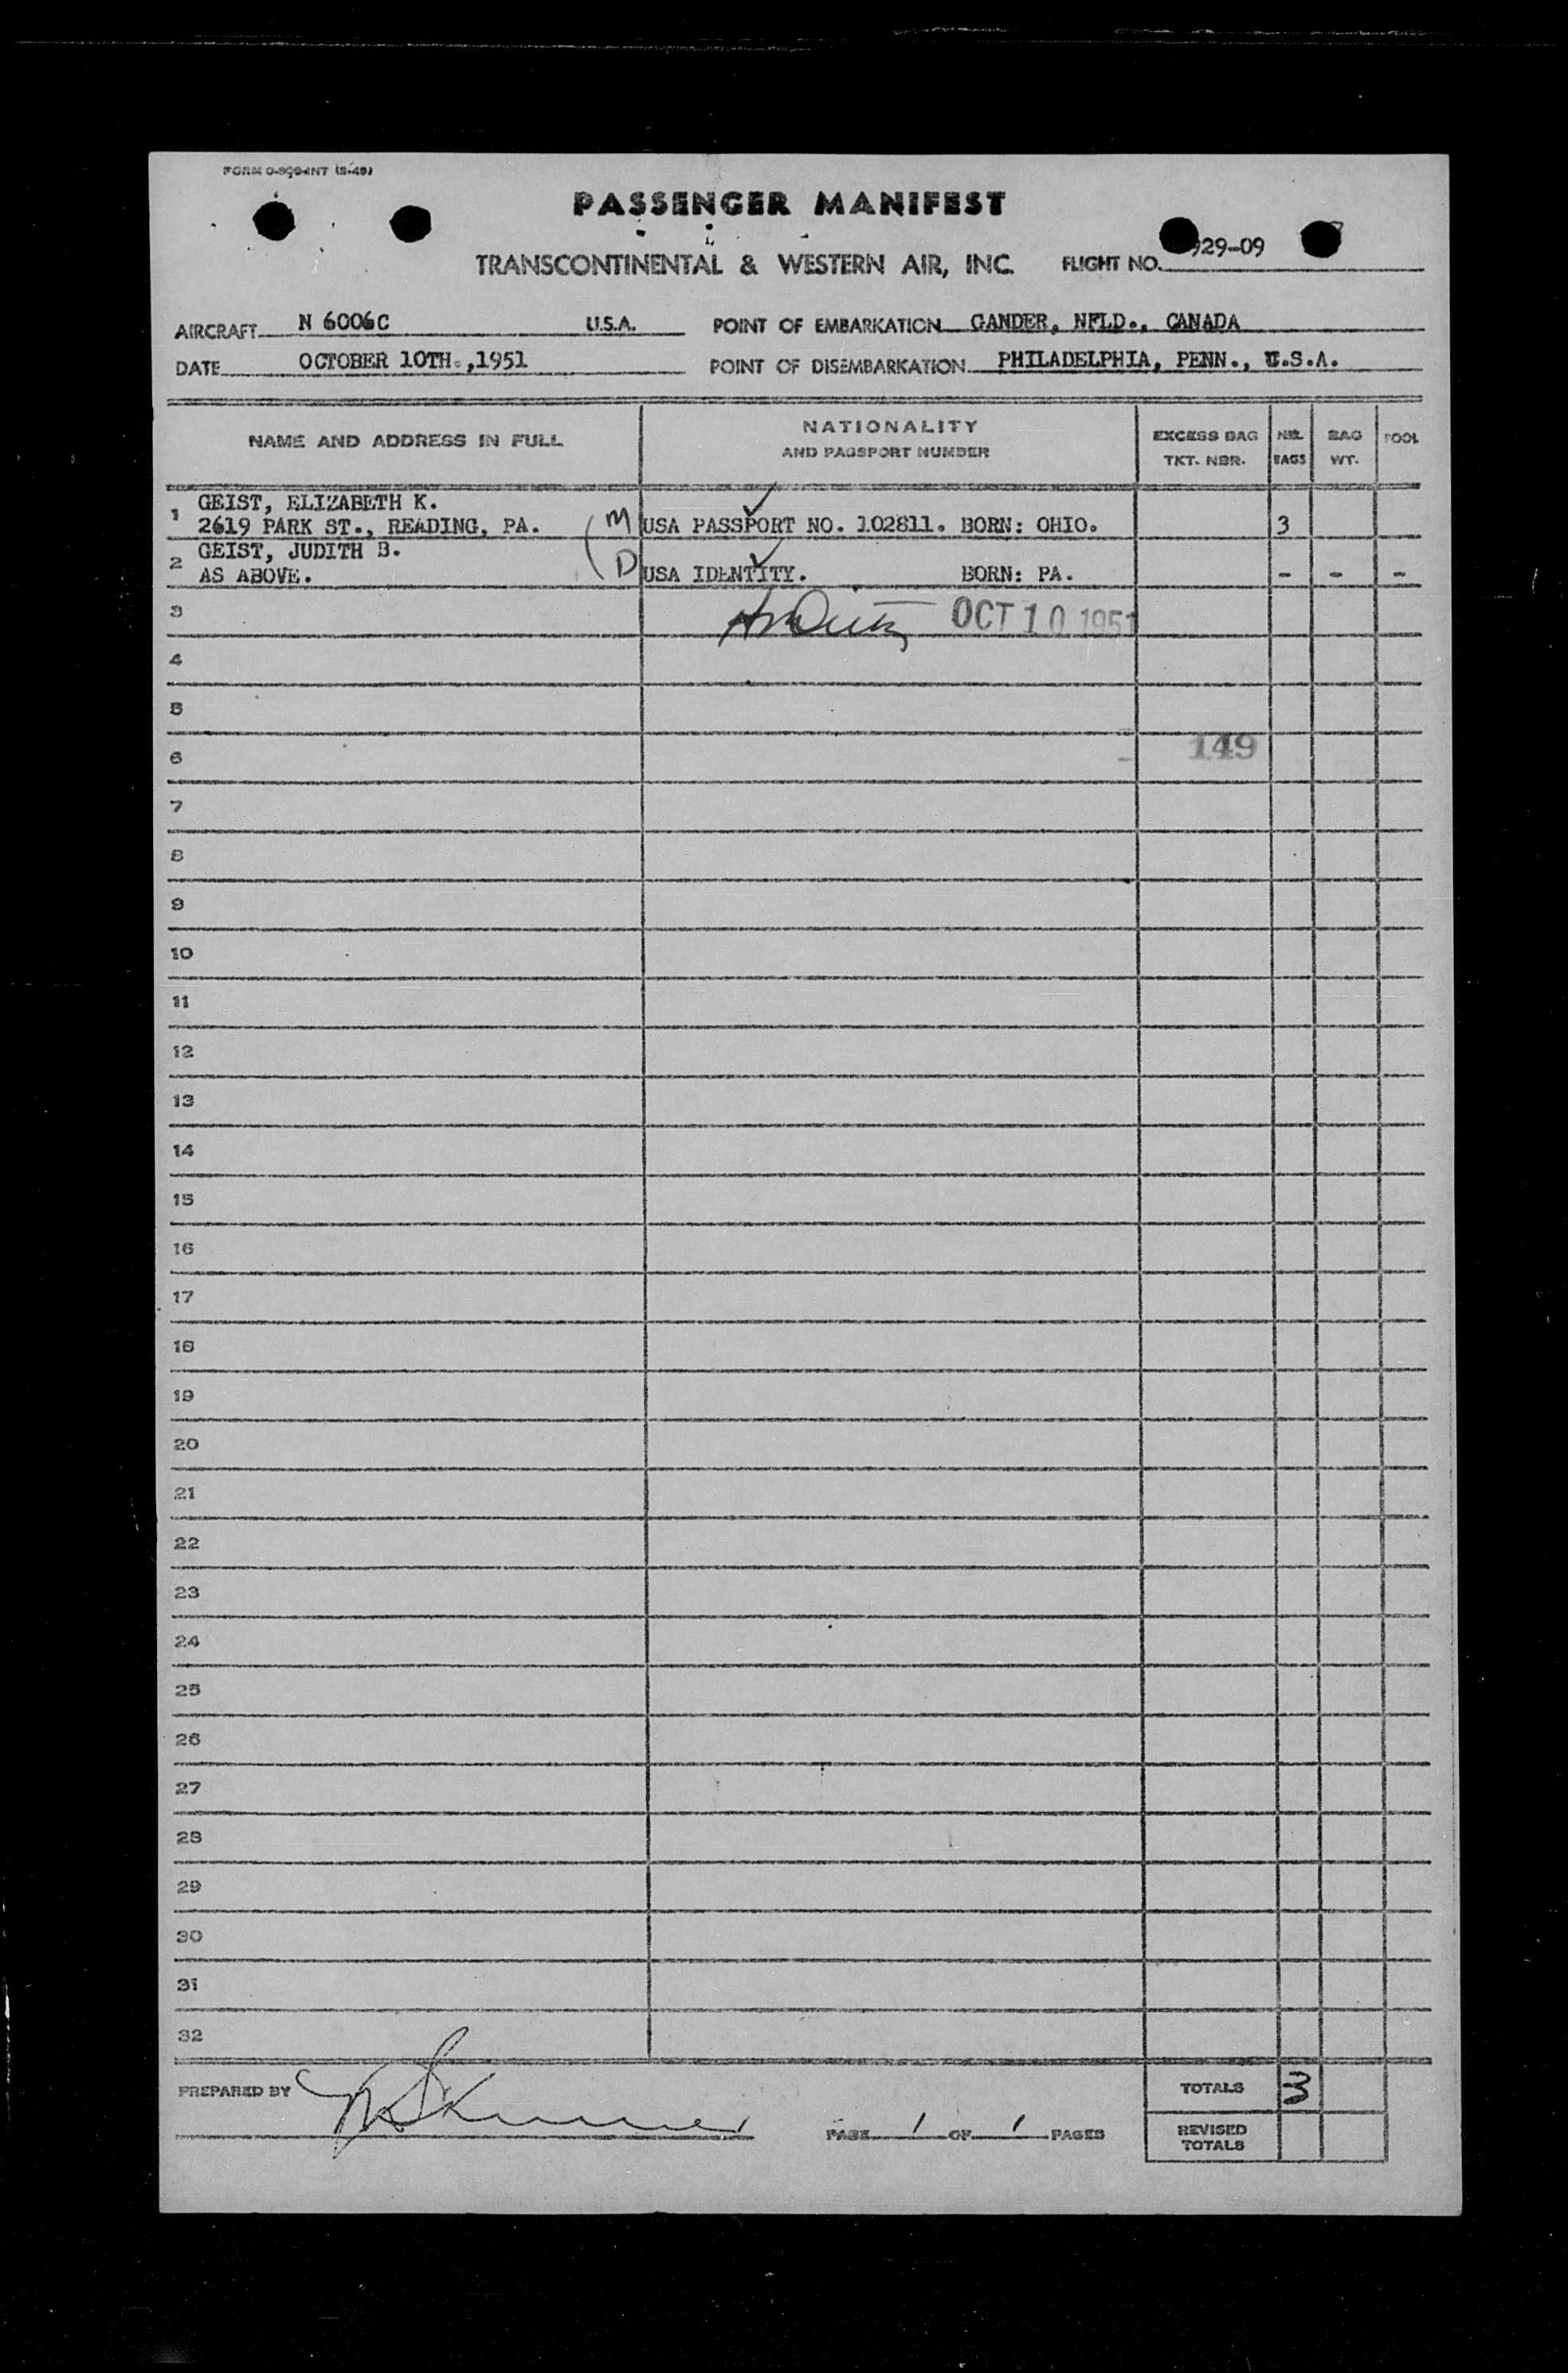 FORM O-890-INT (2-49)
PASSENGER MANIFEST
TRANSCONTINENTAL & WESTERN AIR, INC. FLIGHT NO. 929-09
AIRCRAFT N 6006C U.S.A. POINT OF EMBARKATION GANDER, NFLD., CANADA
DATE OCTOBER 10TH.,1951 POINT OF DISEMBARKATION PHILADELPHIA, PENN., U.S.A.
NAME AND ADDRESS IN FULL NATIONALITY AND PASSPORT NUMBER EXCESS BAG TKT. NBR. NBR. BAGS BAG WT. POOL
1 GEIST, ELIZABETH K.
2619 PARK ST., READING, PA. M USA PASSPORT NO. 102811. BORN: OHIO. 3
2 GEIST, JUDITH B.
AS ABOVE. D USA IDENTITY. BORN: PA. - - -
3 OCT 10 1951
4
5
6 149
7
8
9
10
11
12
13
14
15
16
17
18
19
20
21
22
23
24
25
26
27
28
29
30
31
32
PREPARED BY TOTALS 3
PAGE 1 OF 1 PAGES REVISED TOTALS